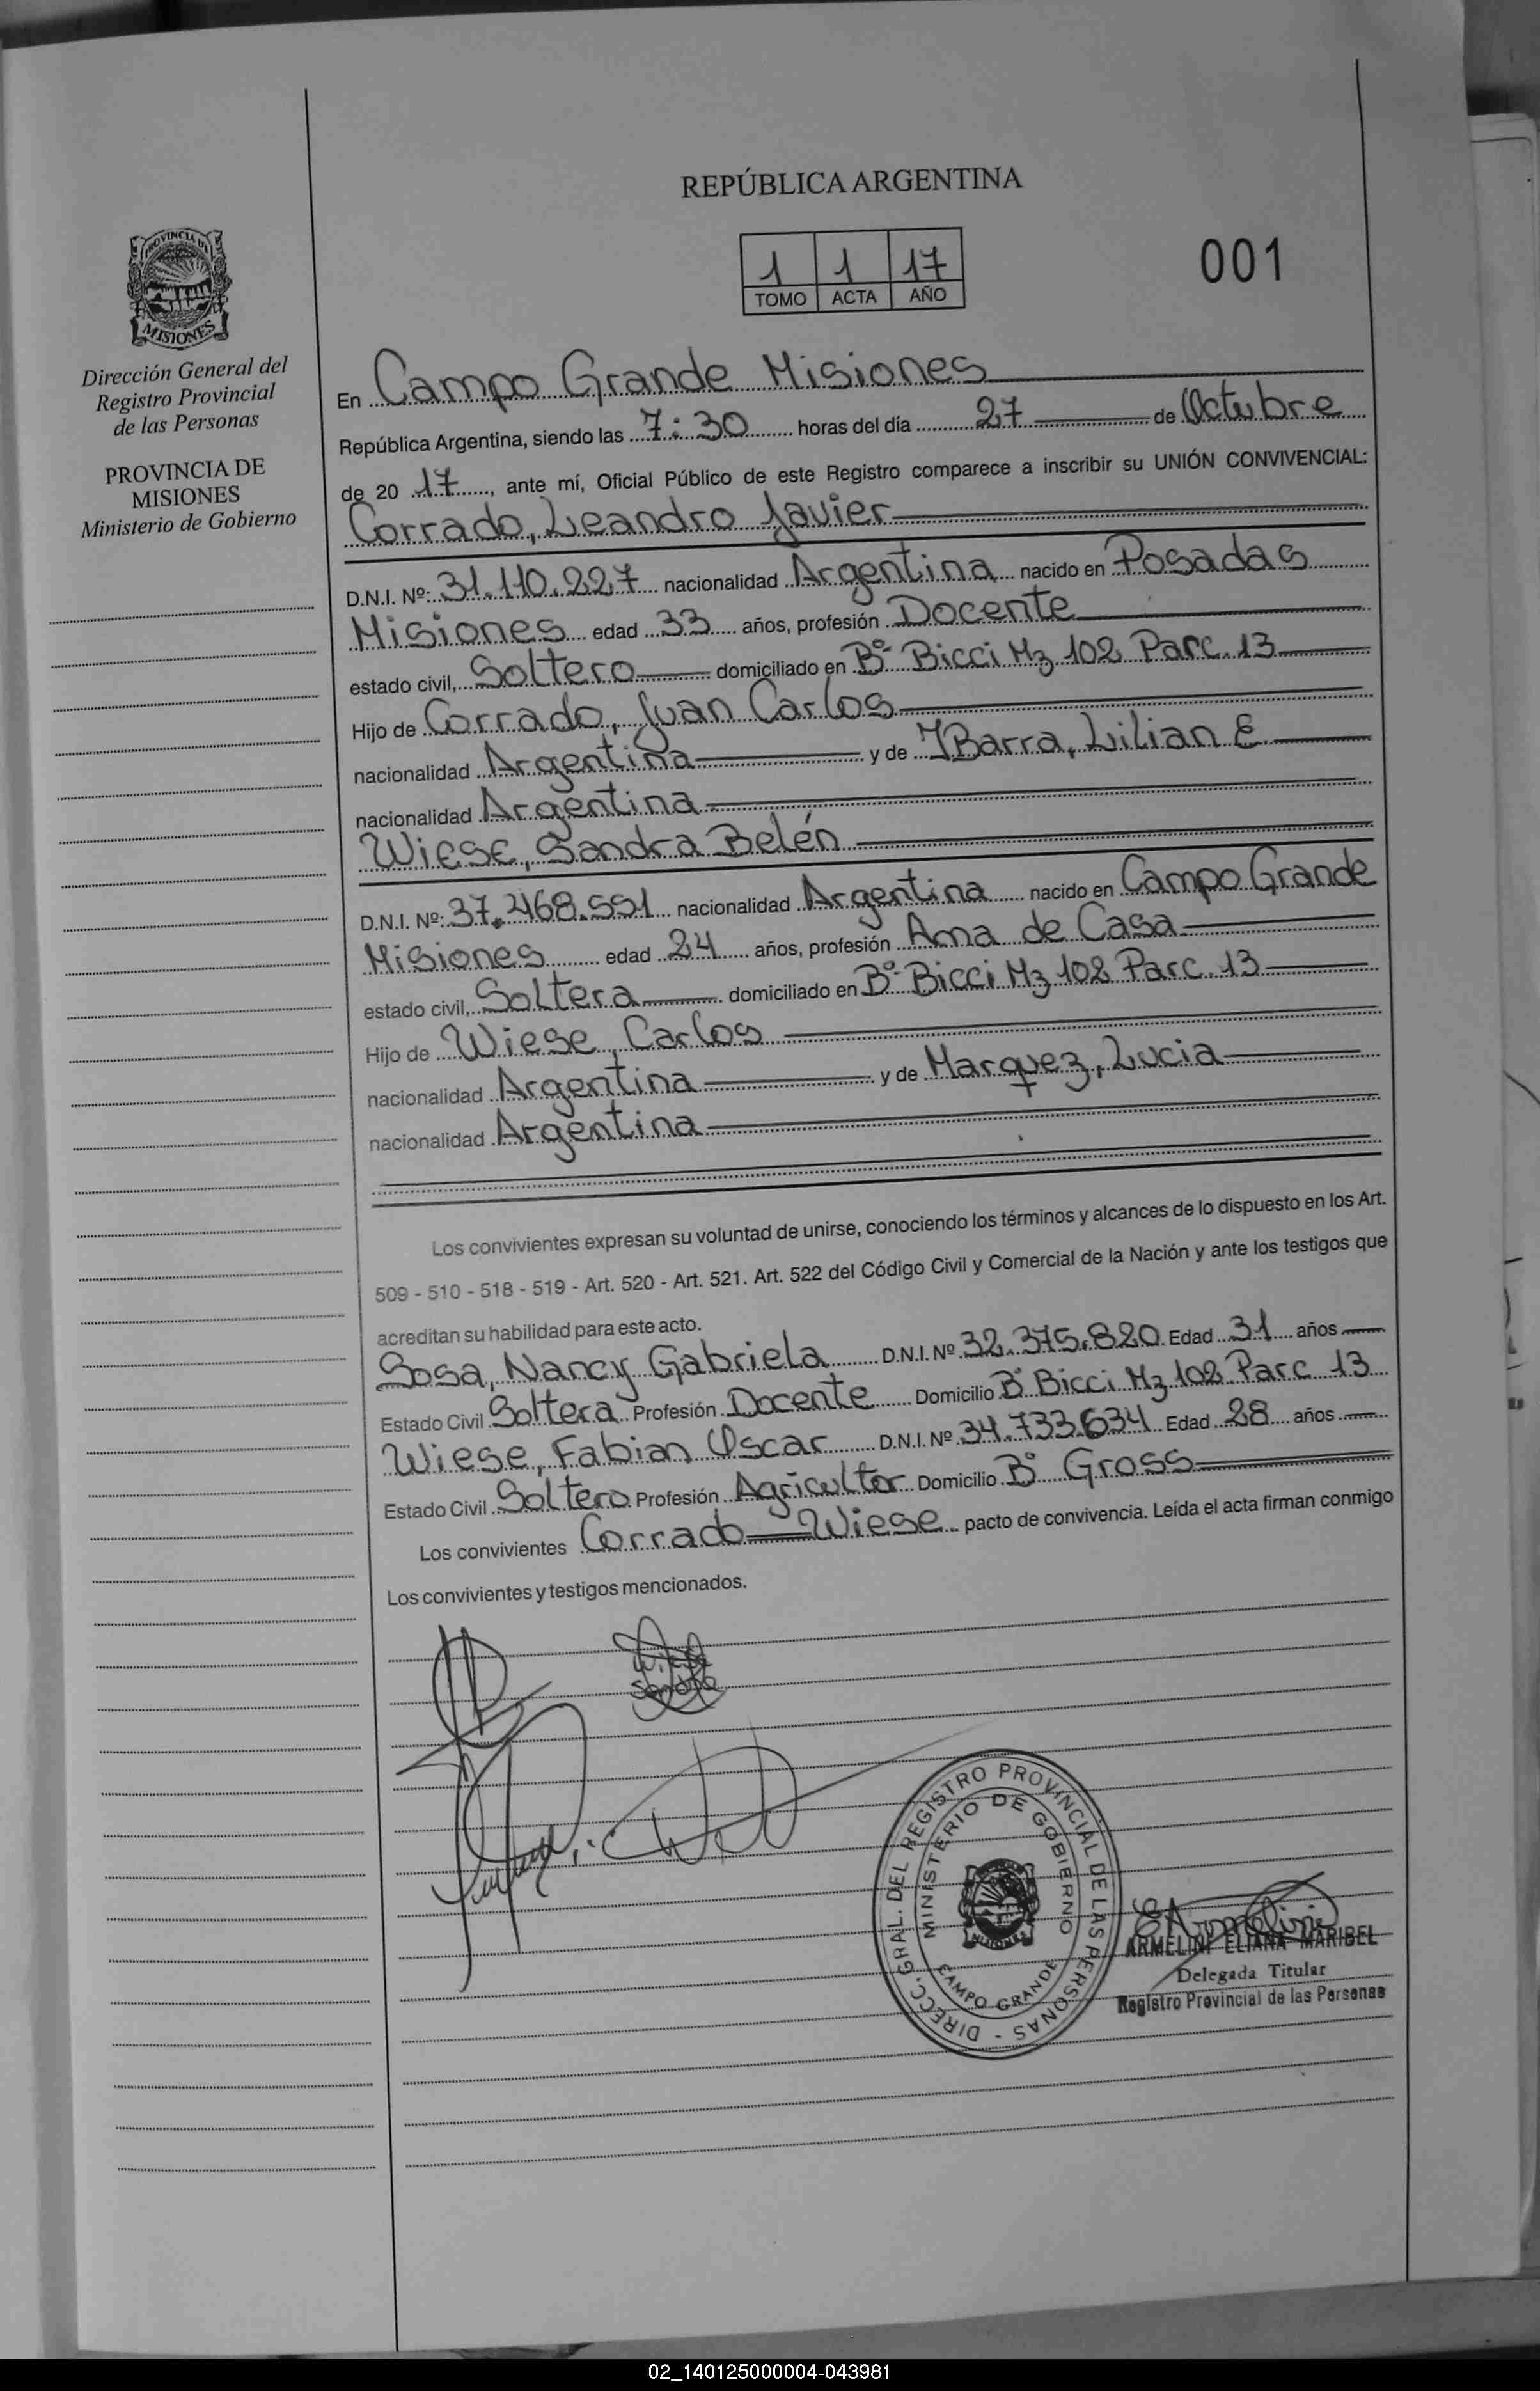 REPÚBLICA ARGENTINA
1 1 17
TOMO ACTA AÑO
001
PROVINCIA DE
MISIONES
Dirección General del
Registro Provincial
de las Personas
PROVINCIA DE
MISIONES
Ministerio de Gobierno
En Campo Grande Misiones
República Argentina, siendo las 7:30 horas del día 27 de Octubre
de 20 17, ante mí, Oficial Público de este Registro comparece a inscribir su UNIÓN CONVIVENCIAL:
Corrado, Leandro Javier
D.N.I. Nº: 31.110.227 nacionalidad Argentina nacido en Posadas
Misiones edad 33 años, profesión Docente
estado civil, Soltero domiciliado en Bº Bicci Mz 102 Parc. 13
Hijo de Corrado, Juan Carlos
nacionalidad Argentina y de YBarra, Lilian E
nacionalidad Argentina
Wiese, Sandra Belén
D.N.I. Nº: 37.468.551 nacionalidad Argentina nacido en Campo Grande
Misiones edad 24 años, profesión Ama de Casa
estado civil, Soltera domiciliado en Bº Bicci Mz 102 Parc. 13
Hijo de Wiese, Carlos
nacionalidad Argentina y de Marquez, Lucia
nacionalidad Argentina
Los convivientes expresan su voluntad de unirse, conociendo los términos y alcances de lo dispuesto en los Art.
509 - 510 - 518 - 519 - Art. 520 - Art. 521. Art. 522 del Código Civil y Comercial de la Nación y ante los testigos que
acreditan su habilidad para este acto.
Sosa, Nancy Gabriela D.N.I. Nº 32.375.820 Edad 31 años
Estado Civil Soltera Profesión Docente Domicilio Bº Bicci Mz 102 Parc 13
Wiese, Fabian Oscar D.N.I. Nº 34.733.634 Edad 28 años
Estado Civil Soltero Profesión Agricultor Domicilio Bº Gross
Los convivientes Corrado Wiese pacto de convivencia. Leída el acta firman conmigo
Los convivientes y testigos mencionados.
Wiese
Sandra
DIRECC. GRAL. DEL REGISTRO PROVINCIAL DE LAS PERSONAS -
MINISTERIO DE GOBIERNO
MISIONES
CAMPO GRANDE
EArmelini
ARMELINI ELIANA MARIBEL
Delegada Titular
Registro Provincial de las Personas
02_140125000004-043981